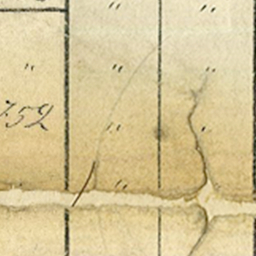 " "
" " "
752 " "
"